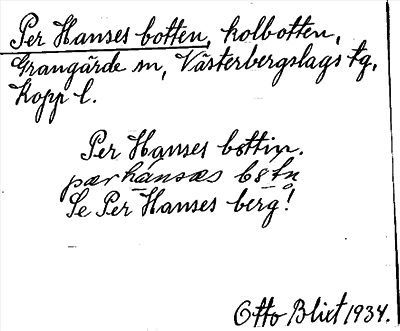 Per Hanses botten, kolbotten,
Grangärde sn, Västerbergslags tg,
Kopp l.
Per Hanses bottin.
pær hánsæs
Se Per Hanses berg!
Otto Blixt 1934.